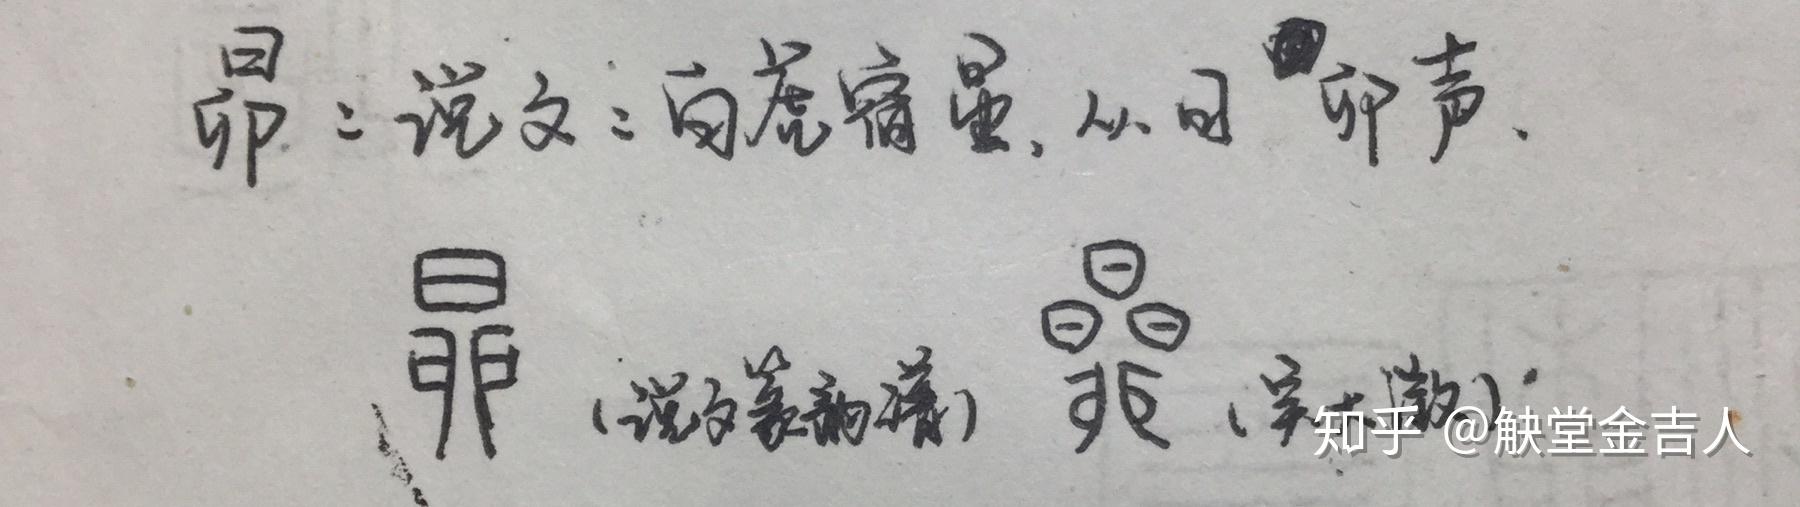 昴：说文：白虎宿星.从日卯声.
昴（说文篆韵谱）昴（吴大澂）
知乎 @觖堂金吉人